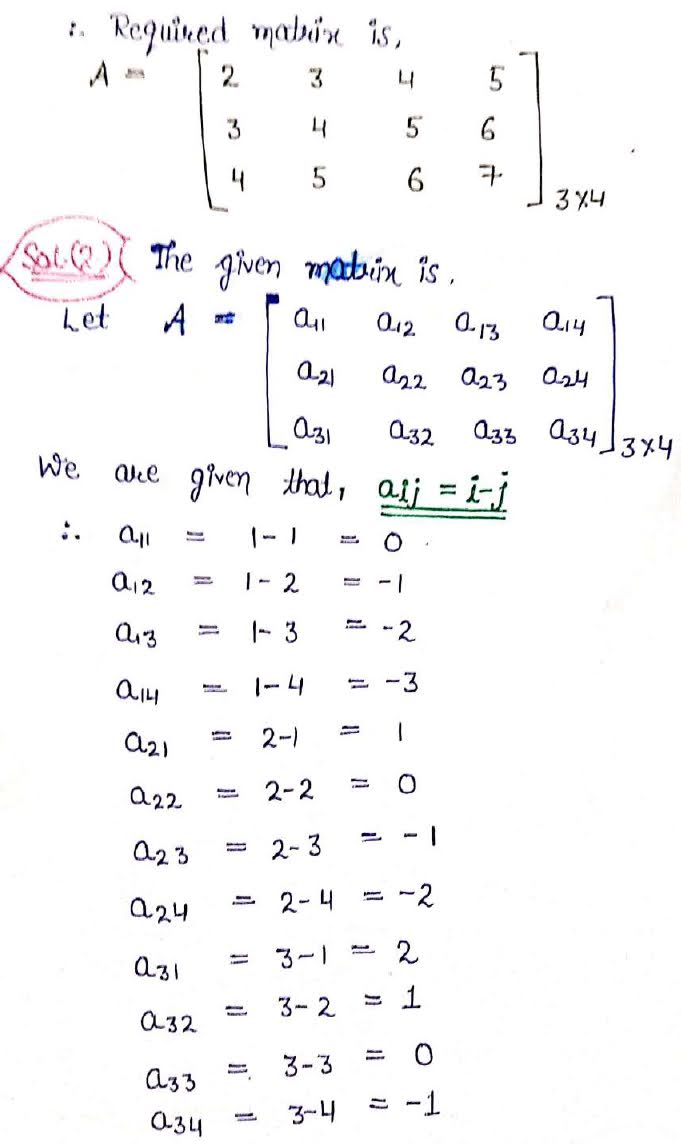 ∴ Required matrix is,
A = [ 2 3 4 5
3 4 5 6
4 5 6 7 ] 3×4
Sol.(2) The given matrix is,
Let A = [ a11 a12 a13 a14
a21 a22 a23 a24
a31 a32 a33 a34 ] 3×4
We are given that, aij = i-j
∴ a11 = 1-1 = 0
a12 = 1-2 = -1
a13 = 1-3 = -2
a14 = 1-4 = -3
a21 = 2-1 = 1
a22 = 2-2 = 0
a23 = 2-3 = -1
a24 = 2-4 = -2
a31 = 3-1 = 2
a32 = 3-2 = 1
a33 = 3-3 = 0
a34 = 3-4 = -1